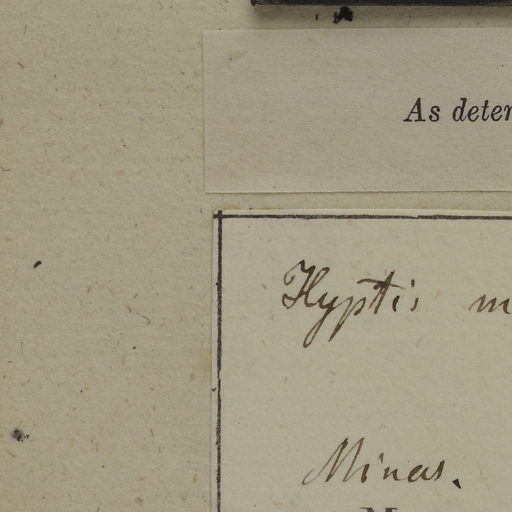 As deter
Hyptis m
Minas.